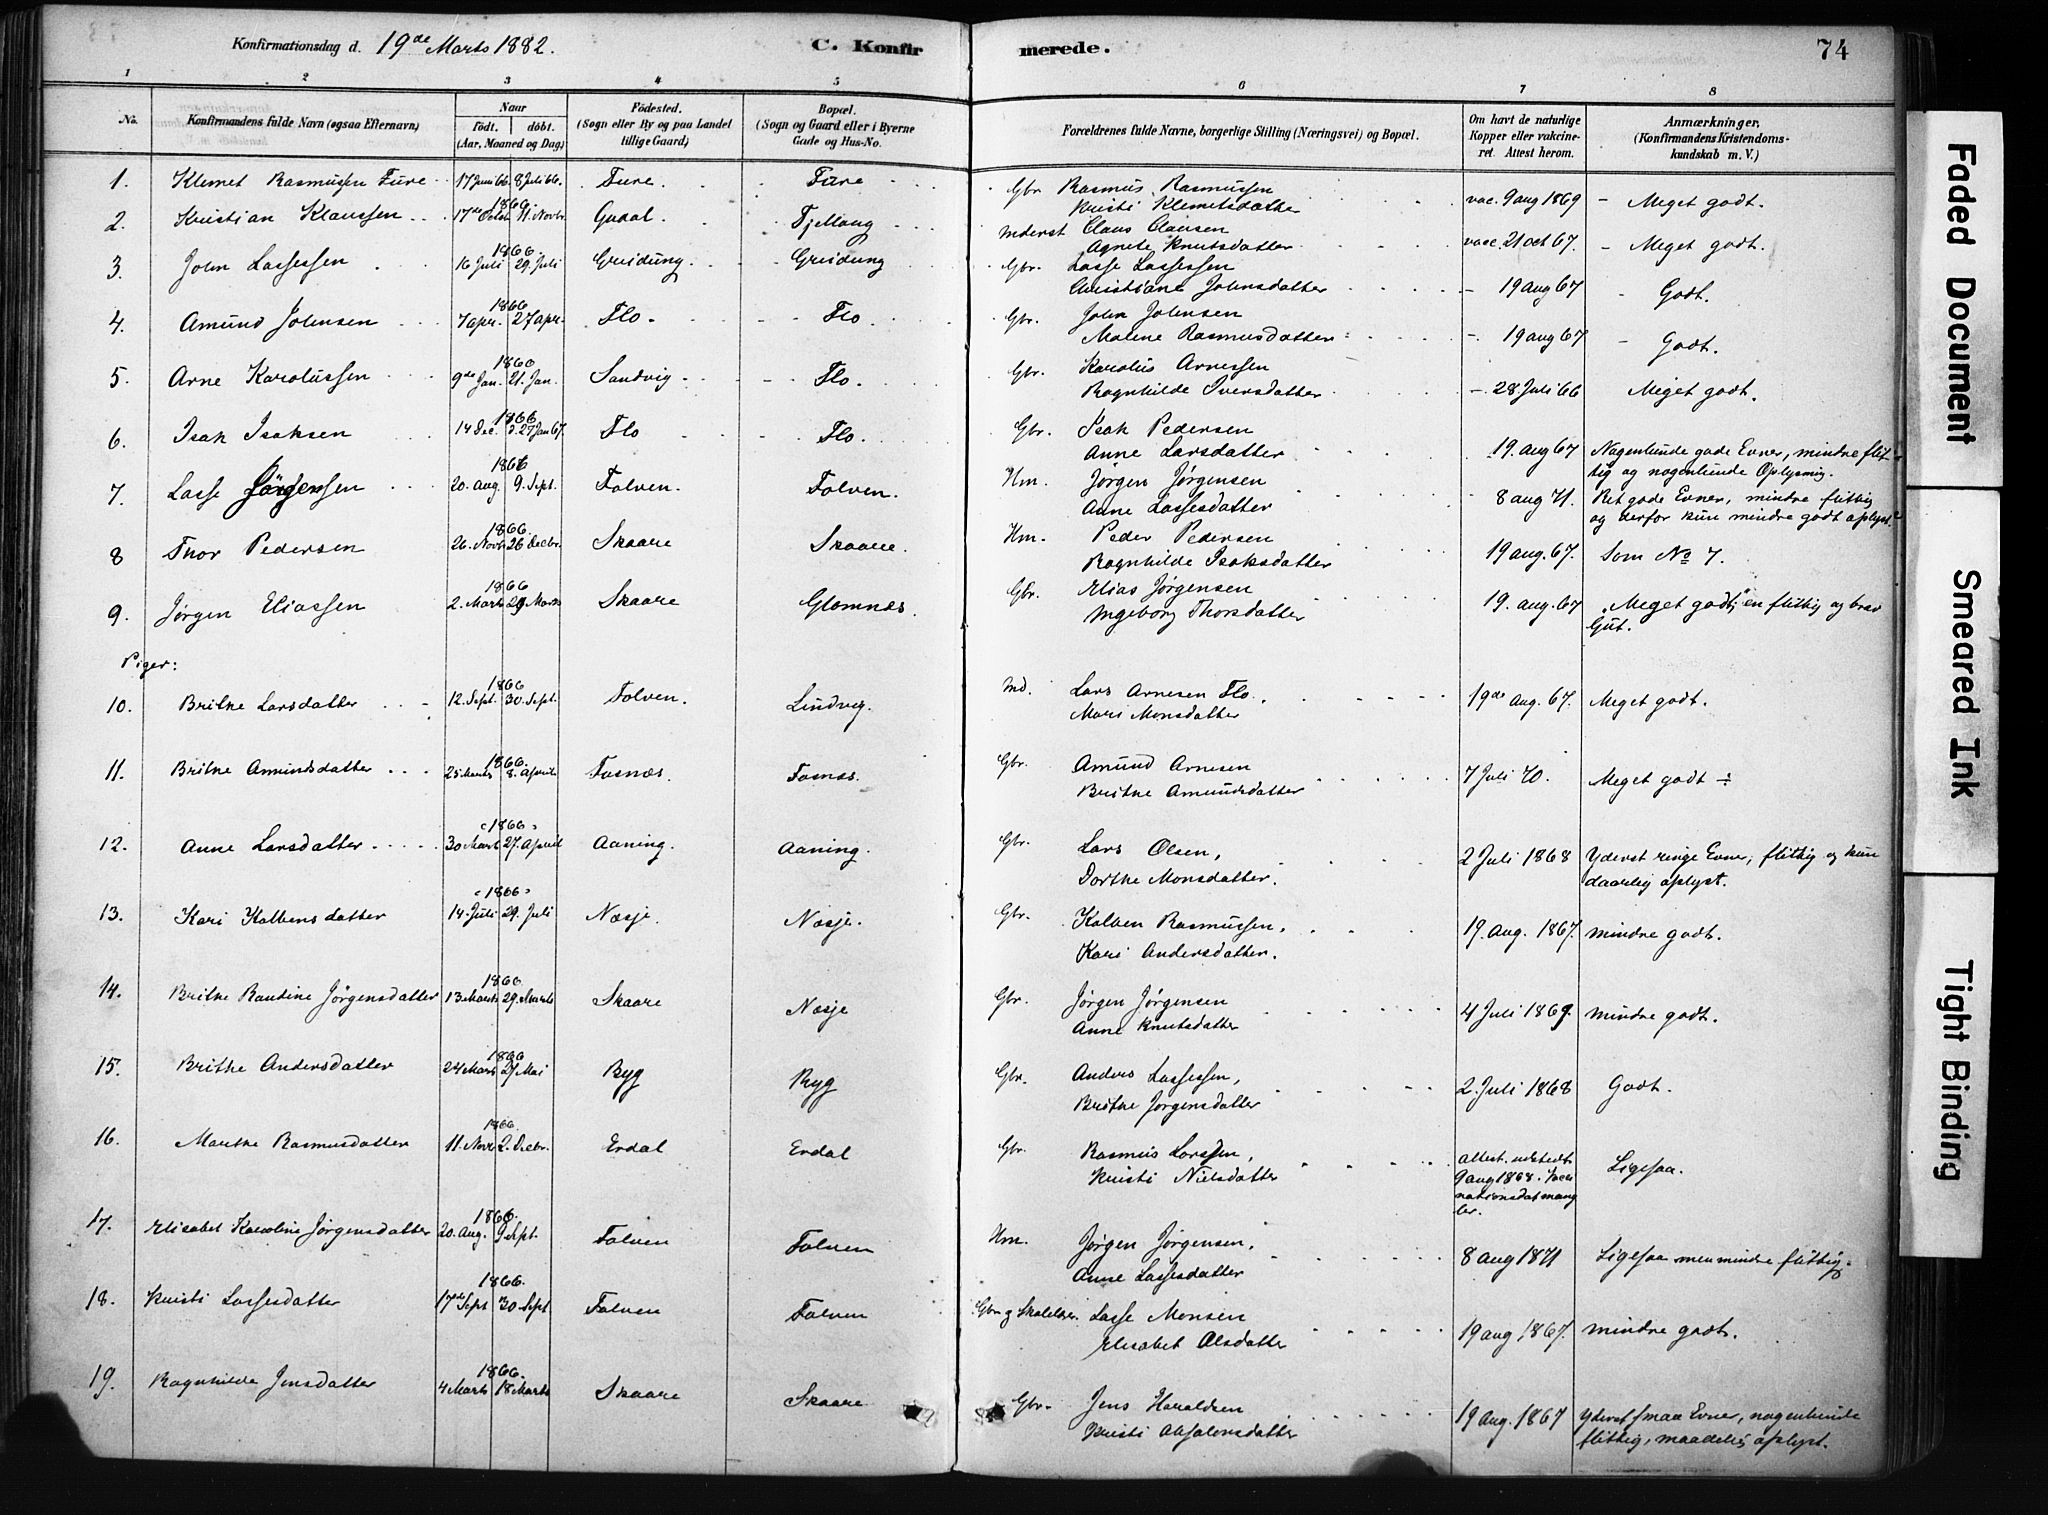 Konfirmationsdag d. 19de Marts 1882. C. Konfirmerede. 74
1 2 3 4 5 6 7 8
No. Konfirmandens fulde Navn (ogsaa Efternavn) Naar födt. döbt. (Aar, Maaned og Dag) Födested. (Sogn eller By og paa Landet tillige Gaard) Bopæl. (Sogn og Gaard eller i Byerne Gade og Hus-No. Forældrenes fulde Navne, borgerlige Stilling (Næringsvei) og Bopæl. Om havt de naturlige Kopper eller vakcineret. Attest herom. Anmærkninger, (Konfirmandens Kristendomskundskab m. V.)
1. Klemet Rasmussen Fure 17 Juni 66. 8 Juli 66. Fure. Fure Gbr. Rasmus Rasmussen
Kristi Klemetsdatter vac. 9 aug 1869 - Meget godt.
2. Kristian Klaussen 1866 17de Octbr 11. Novbr. Gudal. Fjellang Inderst Claus Clausen
Agnete Knutsdatter vacc. 21 oct 67. - Meget godt.
3. John Lassessen 1866 16 Juli 29. Juli Greidung. Greidung Gbr. Lasse Lassessen
Christiane Johnsdatter - 19 aug 67 - Godt.
4. Amund Johnsen 1866 7 apr. 27 apr. Flo. Flo. Gbr. John Johnsen
Malene Rasmusdatter - 19 aug 67 - Godt.
5. Arne Karolussen 1866 9de Jan. 21. Jan. Sandvig Flo. Gbr. Karolus Arnessen
Ragnhilde Iversdatter - 28 Juli 66 Meget godt.
6. Isak Isaksen 1866 14 Dec. 27 Jan 67. Flo Flo. Gbr. Isak Pedersen
Anne Larsdatter 19. aug 67 Nogenlunde gode Evner, mindre flit-
tig og nogenlunde Oplysning.
7. Lasse Jörgensen 1866 20. aug. 9. Sept. Folven. Folven. Hm. Jørgen Jørgensen
Anne Lassesdatter 8 aug 71. Ret gode Evner, mindre flittig
og derfor kun mindre godt oplyst.
8 Thor Pedersen 1866 26. Novbr 26 Decbr. Skaare Skaare. Hm. Peder Pedersen
Ragnhilde Isaksdatter 19 aug. 67. Som No 7.
9. Jørgen Eliassen 1866 2. Marts 29 Marts Skaare Glomnes. Gbr. Elias Jørgensen
Ingeborg Thorsdatter 19. aug. 67 "Meget godt", en flittig og brav
Gut.
Piger:
10. Brithe Larsdatter 1866 12. Sept. 30. Sept. Folven. Lindvig. Ind. Lars Arnesen Flo.
Mari Monsdatter 19de aug. 67. Meget godt.
11. Brithe Amundsdatter 1866 25 Marts 8. April Fosnæs. Fosnæs. Gbr. Amund Arnesen
Brithe Amundsdatter 7 Juli 70. Meget godt ÷
12. Anne Larsdatter 1866 30 Marts 27. April Aaning. Aaning. Gbr. Lars Olsen,
Dorthe Monsdatter. 2 Juli 1868 Yderst ringe Evner, flittig og kun
daarlig oplyst.
13. Kari Kolbensdatter 1866 14. Juli 29. Juli Næsje. Næsje. Gbr. Kolben Rasmussen,
Kari Andersdatter. 19. Aug. 1867. Mindre godt.
14. Brithe Raudine Jörgensdatter 1866 13 Marts 29. Marts Skaare Næsje Gbr. Jørgen Jørgensen
Anne Knutsdatter 4 Juli 1869. Mindre godt.
15. Brithe Andersdatter 1866 24 Marts 27 Mai Ryg Ryg Gbr. Anders Lassessen,
Brithe Jørgensdatter 2. Juli 1868 Godt.
16. Marthe Rasmusdatter 1866. 11. Novr 2. Decbr. Erdal Erdal Gbr. Rasmus Larssen,
Kristi Nielsdatter attest. udstedt
9 aug 1868. Vacci
nationsdat mang
ler. Ligesaa.
17. Elisabet Karoline Jørgensdatter 1866. 20. Aug. 9 Sept. Folven Folven Hm. Jørgen Jørgensen,
Anne Lassesdatter 8 aug 1871 Ligesaa men mindre flittig.
18. Kristi Lassesdatter 1866. 17de Sept 30 Sept. Folven Folven Gbr. og Skolelærer Lasse Monsen
Elisabet Olsdatter 19 aug 1867. Mindre godt.
19. Ragnhilde Jensdatter 1866. 4 Marts 18 Marts Skaare Skaare Gbr. Jens Haraldsen
Kristi Absalonsdatter 19 Aug. 1867 Yderst smaa Evner, nogenlunde
flittig, maadelig oplyst.
Faded Document
Smeared Ink
Tight Binding